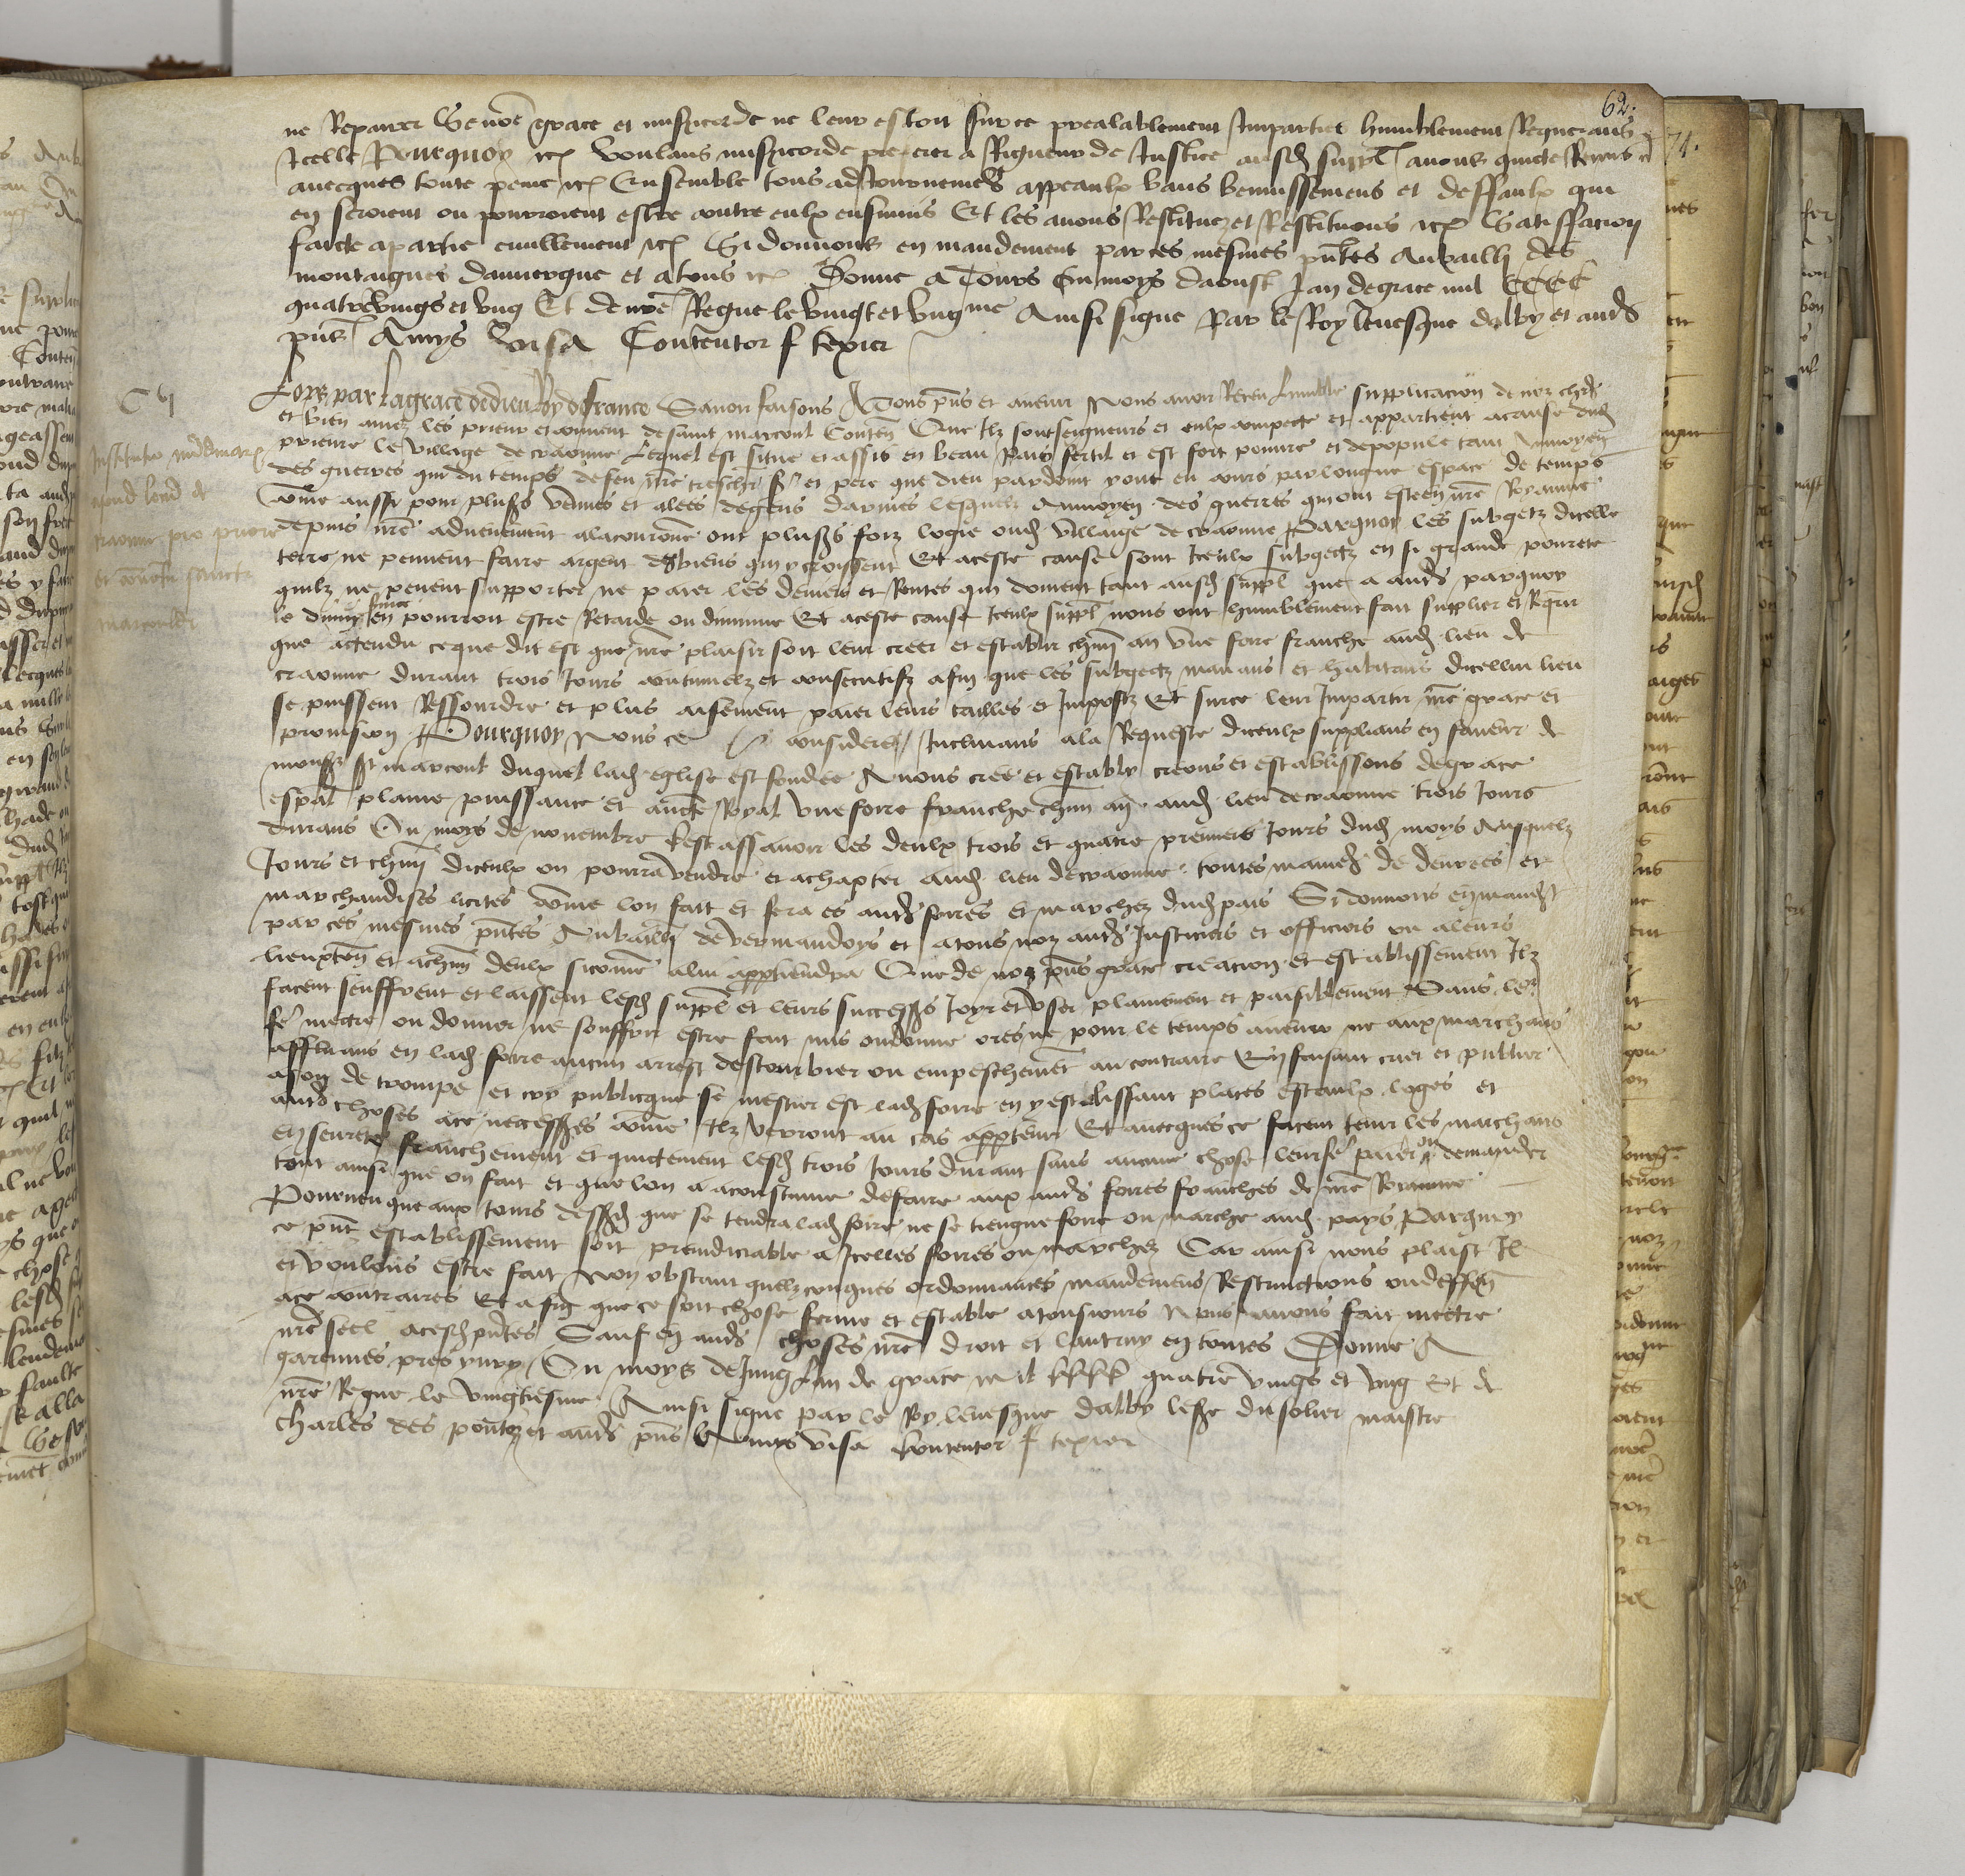 62.
ne Reparer Se nre grace et misericorde ne leur estoit sur ce prealablement Impartie humblement Requerans
Icelle Pourquoy etc voulans misericorde preferer a Rigueur de Justice ausd suppl avons quicte Remis etc
avecques toute peine etc Ensemble tous adjournemens appeaulx bans bannissemens et deffaulx qui
en seroient ou pourroient estre contre eulx ensuivis Et les avons Restituez et Restituons etc Satisffacion
faicte a partie civillement etc Si donnons en mandement par ces mesmes pntes Au bailli des
montaignes dauvergne et a tous etc Donne a Tours Ou moys daoust Lan de grace mil CCCC
quatrevings et ung Et de nre Regne le vingt et ungme Ainsi signe Par le Roy levesque dalby et audr
pns Amys Visa Contentor f texier
Loys par la grace de dieu Roy de france Savoir faisons A Tous pns et avenir Nous avoir Receu lumble supplicacion de noz chers
et bien amez les prieur et couvent de saint marcoul Conten Que Ilz sont seigneurs et eulx compecte et appartient a cause dud
prieure le village de craonne Lequel est situe et assis en beau Pais fertil et est fort pouvre et depopule tant Au moyen
des guerres qui du temps de feu nre treschr sr et pere que dieu pardoint y ont eu cours par longue espace de temps
come aussi pour plusrs venues et alees de gens darmes lesquelz Au moyen des guerres qui ont este en nre Royaume
depuis nre advenement a la couronne ont plusrs foiz logie oud village de craonne Parquoy les subgetz dicelle
terre ne peuvent faire argent des biens qui y croissent Et a ceste cause sont Iceulx subgectz en si grande povrete
quilz ne pevent supporter ne paier les deniers et Rentes quilz doivent tant ausd suppl que a audrs parquoy
le divin service en pourroit estre Retarde ou diminue Et a ceste cause Iceulx suppl nous ont humblement fait supplier et Requerir
que actendu ce que dit est que nre plaisir soit leur creer et establir chun an une foire franche aud lieu de
craonne durant trois Jours continuelz et consecutifz afin que les subgectz manans et habitans dicellui lieu
se puissent Ressourdre et plus aisement paier leurs tailles et Impostz Et sur ce leur Impartir nre grace et
provision Pourquoy Nous ce considere Inclinans a la Requeste diceulx supplians en faveur de
monsr st marcoul duquel lad eglise est fondee Avons cree et estably creons et establissons de grace
espal plaine puissance et aucte Royal Une foire franche chun an aud lieu de craonne trois Jours
durans Ou moys de novembre Cest assavoir les deulx trois et quatre premiers Jours dud moys Ausquelz
Jours et chun diceulx on pourra vendre et achapter aud lieu de craonne toutes manieres de denrees et
marchandises licites come lon fait et fera es audrs foires et marchez dud pais Si donnons en mandt
par ces mesmes pntes Au bailli de vermandoys et a tous noz audrs Justiciers et officiers ou a leurs
lieuxten et a chun deulx si come a lui appartiendra Que de noz pns grace creacion et establissement Ilz
facent seuffrent et laissent lesd suppl et leurs successrs Joyr et user plainement et paisiblement Sans leur
fe mectre ou donner ne souffrir estre fait mis ou donne ores ne pour le temps avenir ne aux marchans
affluans en lad foire aucun arrest destourbier ou empeschement au contraire En faisant crier et publier
a son de trompe et cry publicque se mestier est lad foire en y establissant places estaulx loges et
audrs choses a ce necessres come Ilz verront au cas apptenir Et avecques ce facent tenir les marchans
en seurete franchement et quictement lesd trois Jours durant sans aucune chose leur fe paier ou demander
tout ainsi que on fait et que lon a acoustume de faire aux audrs foires franches de nre Royaume
Pourveu que aux Jours dessusd que se tendra lad foire ne se tiengne foire ou marche aud pays Parquoy
ce pnt establissement soit preiudiciable a Icelles foires ou marchez Car ainsi nous plaist Il
et voulons estre fait Non obstant quelzconques ordonnances mandemens Restrinctions ou deffen
a ce contraires Et afin que ce soit chose ferme et estable a tousiours Nous avons fait mectre
nre seel a cesd pntes Sauf en audrs choses nre droit et lautruy en toutes Donne A
garennes pres yvry Ou moys de Juing Lan de grace mil CCCC quatre vings et ung Et de
nre Regne le vingtiesme Ainsi signe par le Roy levesque dalby lesre du solier maistre
charles des pontoz et audrs pns Amys Visa Contentor f texier
Institutio nundinarum
apud locum de
craonne pro priore
et conventu sancti
marculfi
74.